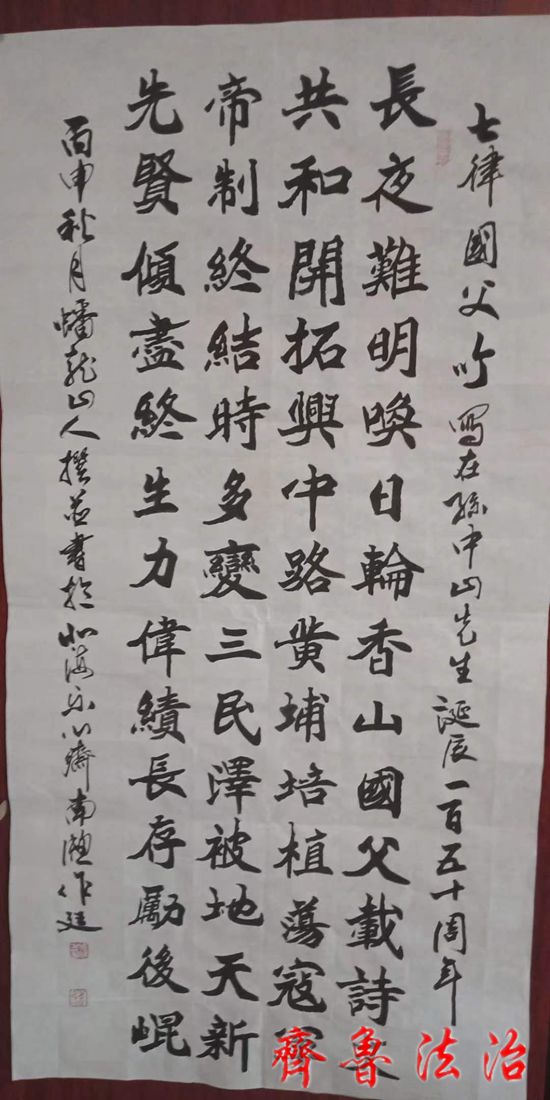 七律 國父吟 寫在孫中山先生誕辰一百五十周年
長夜難明喚日輪香山國父載詩
共和開拓興中路黄埔培植蕩寇
帝制終結時多變三民澤被地天新
先賢傾盡終生力偉績長存勵後崐
丙申秋月蟠龍山人撰並書於北海乐心齋南作廷
齊魯法治